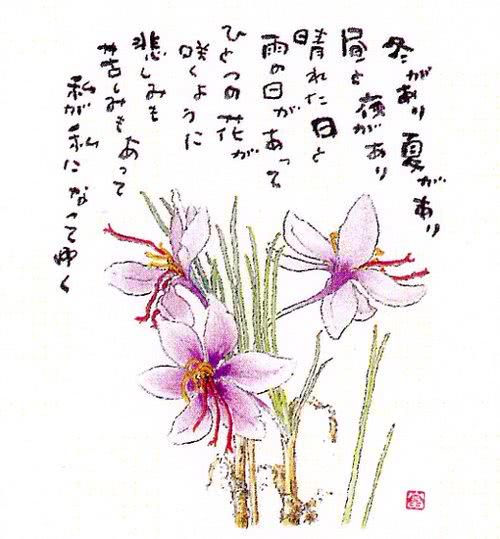 冬があり夏があり
昼と夜があり
晴れた日と
雨の日があって
ひとつの花が
咲くように
悲しみも
苦しみもあって
私が私になってゆく
富